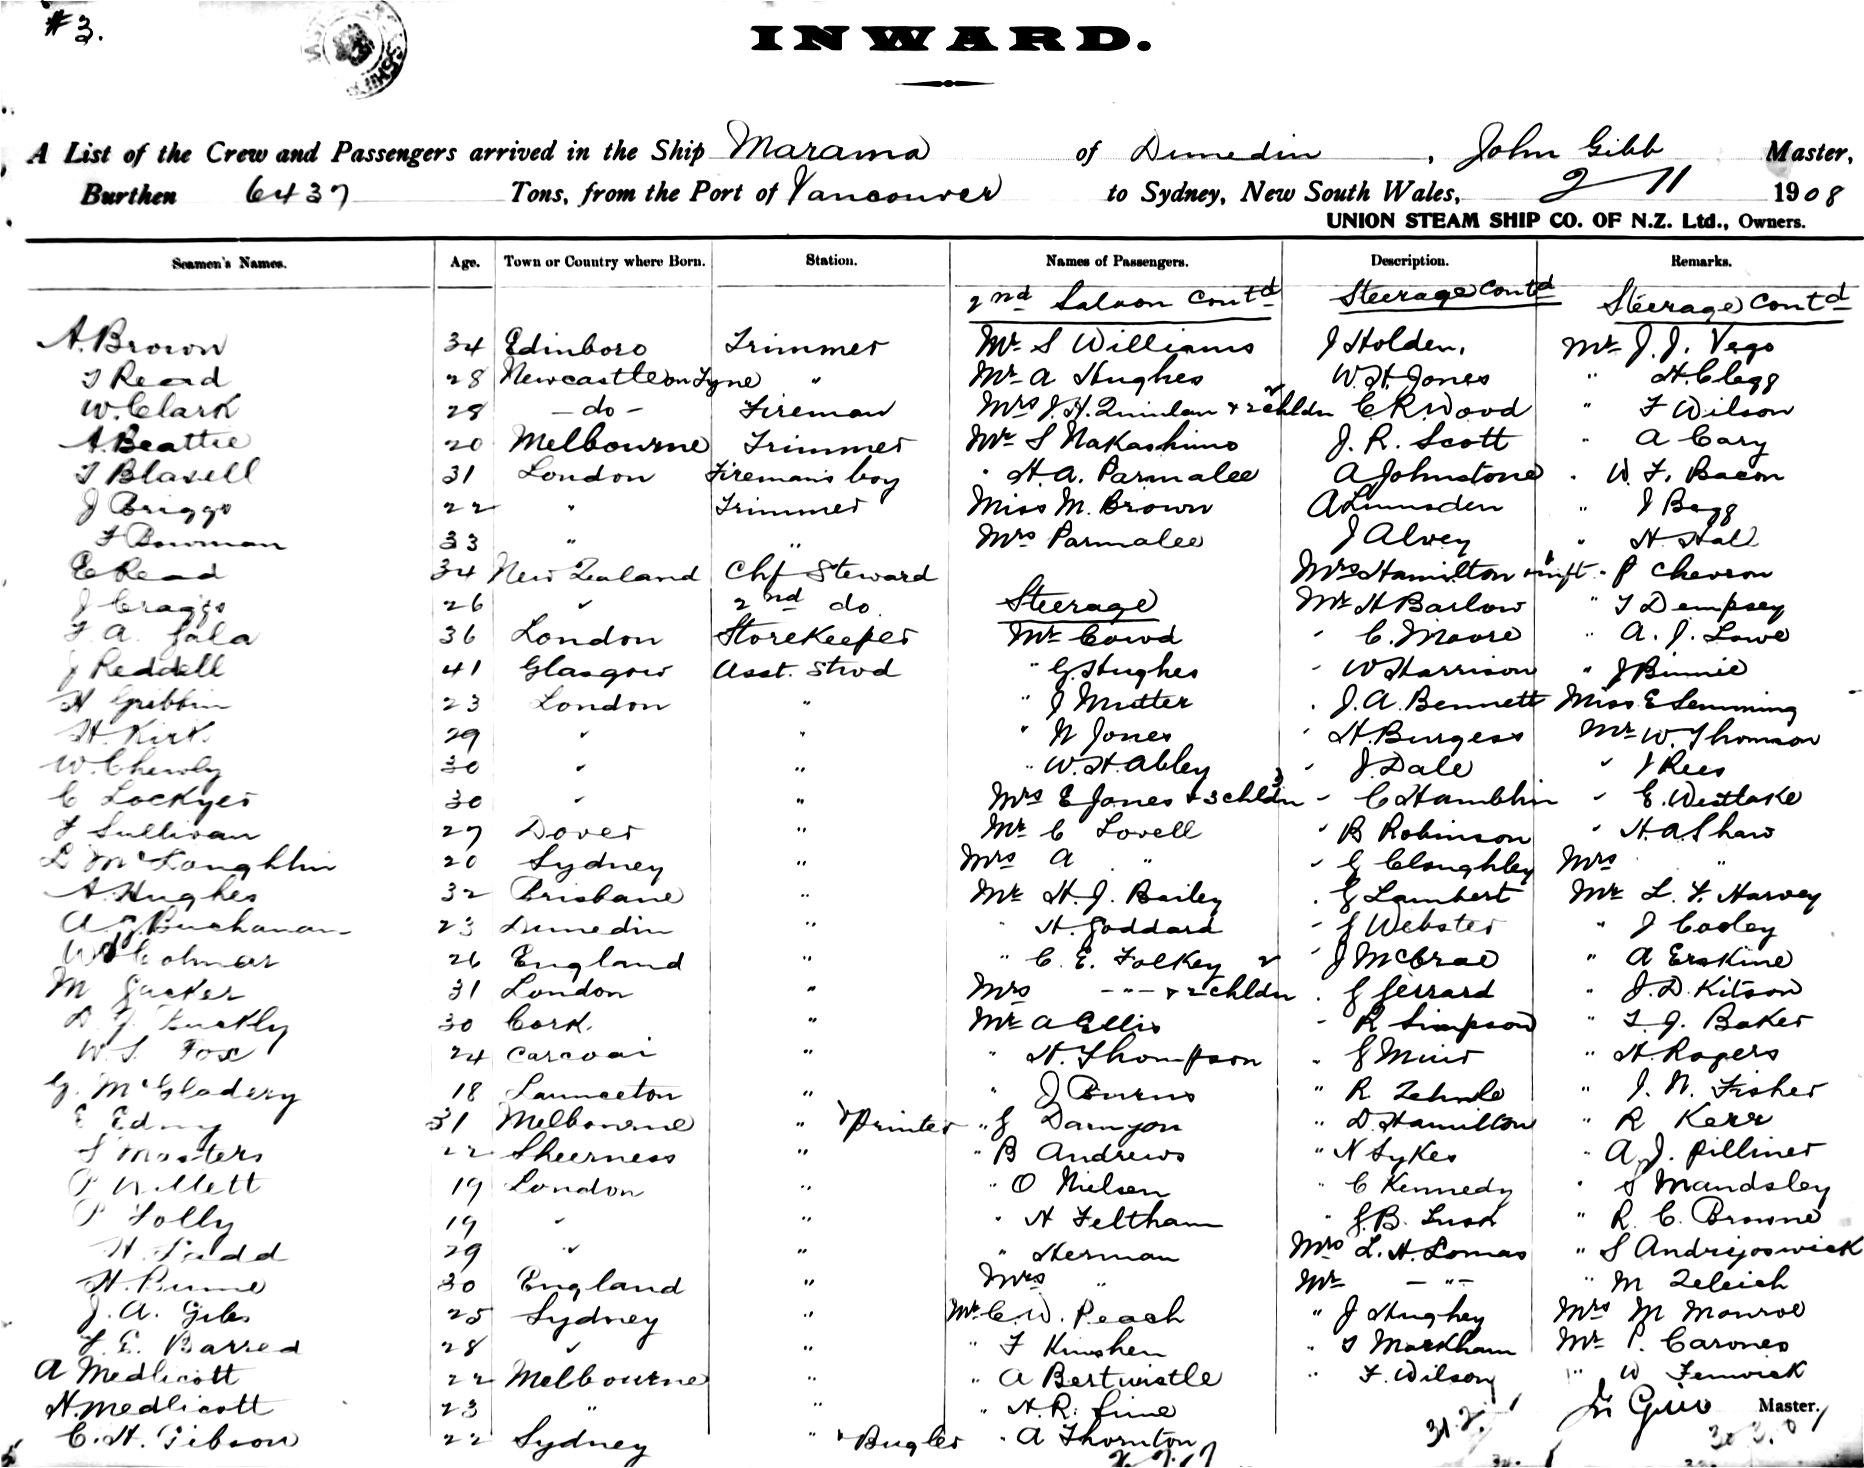 #3.
INWARD.
A List of the Crew and Passengers arrived in the Ship Marama of Dunedin, John Gibb Master,
Burthen 6437 Tons, from the Port of Vancouver to Sydney, New South Wales, 2/11 1908
UNION STEAM SHIP CO. OF N.Z. Ltd., Owners.
Seamen's Names. Age. Town or Country where Born. Station. Names of Passengers. Description. Remarks.
2nd Saloon Contd Steerage Contd Steerage Contd
A. Brown 34 Edinboro Trimmer Mr S Williams J Holden, Mr J. J. Vego
T Read 28 Newcastle on Tyne " Mr A Hughes W. H. Jones " H. Clegg
W. Clark 28 - do - Fireman Mrs J. H. Quinlan + 2 chldn C R Wood " F Wilson
A. Beattie 20 Melbourne Trimmer Mr S Nakashimo J. R. Scott " A Cary
T Blasell 31 London Fireman's boy " H. A. Parmalee A Johnstone " W. F. Bacon
J Briggs 22 " Trimmer Miss M. Brown A Lumsden " J Begg
F Bowman 33 " " Mrs Parmalee J Alvey " H. Hall
E Read 34 New Zealand Chf Steward Mrs Hamilton + inft " P Chevron
J Craggs 26 " 2nd do. Steerage Mr H Barlow " T Dempsey
F. A. Gala 36 London Storekeeper Mr Cowd " C. Moore " A. J. Lowe
J Reddell 41 Glasgow Asst. Stwd " G. Hughes " W Harrison " J Binnie
H Gribbin 23 London " " J Mutter " J. A. Bennett Miss E Lemming
H. Kirk. 29 " " " N Jones " H. Burgess Mr W. Thomson
W. Chewly 30 " " " W. H. Abley " J. Dale " J Rees
C Lockyer 30 " " Mrs E Jones + 3 chldn " C Hamblin " E. Westlake
F Sullivan 27 Dover " Mr C Lovell " B Robinson " H. A. Shaw
L McLoughlin 20 Sydney " Mrs A " " G Cloughley Mrs "
A. Hughes 32 Brisbane " Mr H. J. Bailey " G Lambert Mr L. F. Harvey
A J Buchanan 23 Dunedin " " H. Goddard " G Webster " J Cooley
W Colmer 26 England " " C. E. Folkey " J McCrae " A Erskine
M Gacker 31 London " Mrs - " - + 2 chldn " G Gerrard " J. D. Kitson
D. J. Buckly 30 Cork. " Mr A Ellis " R Simpson " T. J. Baker
W. S. Fox 24 Carcoai " " H. Thompson " G Muir " H Rogers
G. McGladery 18 Launceton " " J Burns " R Zehnle " J. N. Fisher
E Edny 31 Melbourne " + Printer " G Darnyon " D. Hamilton " R Kerr
S Masters 22 Sheerness " " B Andrews " N Sykes " A. J. Pilliner
P Willett 19 London " " O Nielsen " C Kennedy " S Mandsley
P Tolly 19 " " " H Feltham " G. B. Lusk " R. C. Browne
H. Ladd 29 " " " Herman Mrs L. H. Lomas " S Andrijoswick
H. Bume 30 England " Mrs " Mr - " - " M Zeleich
J. A. Giles 25 Sydney " Mr C. W. Peach " J Hughey Mrs M Monroe
F. E. Barred 28 " " " F Kinshen " T Markham Mr P. Carones
A Medlicott 22 Melbourne " " A Bertwistle " F. Wilson " W Fenwick
H. Medlicott 23 " " " H. R. Fine Master.
C. H. Gibson 22 Sydney " + Bugler " A Thornton